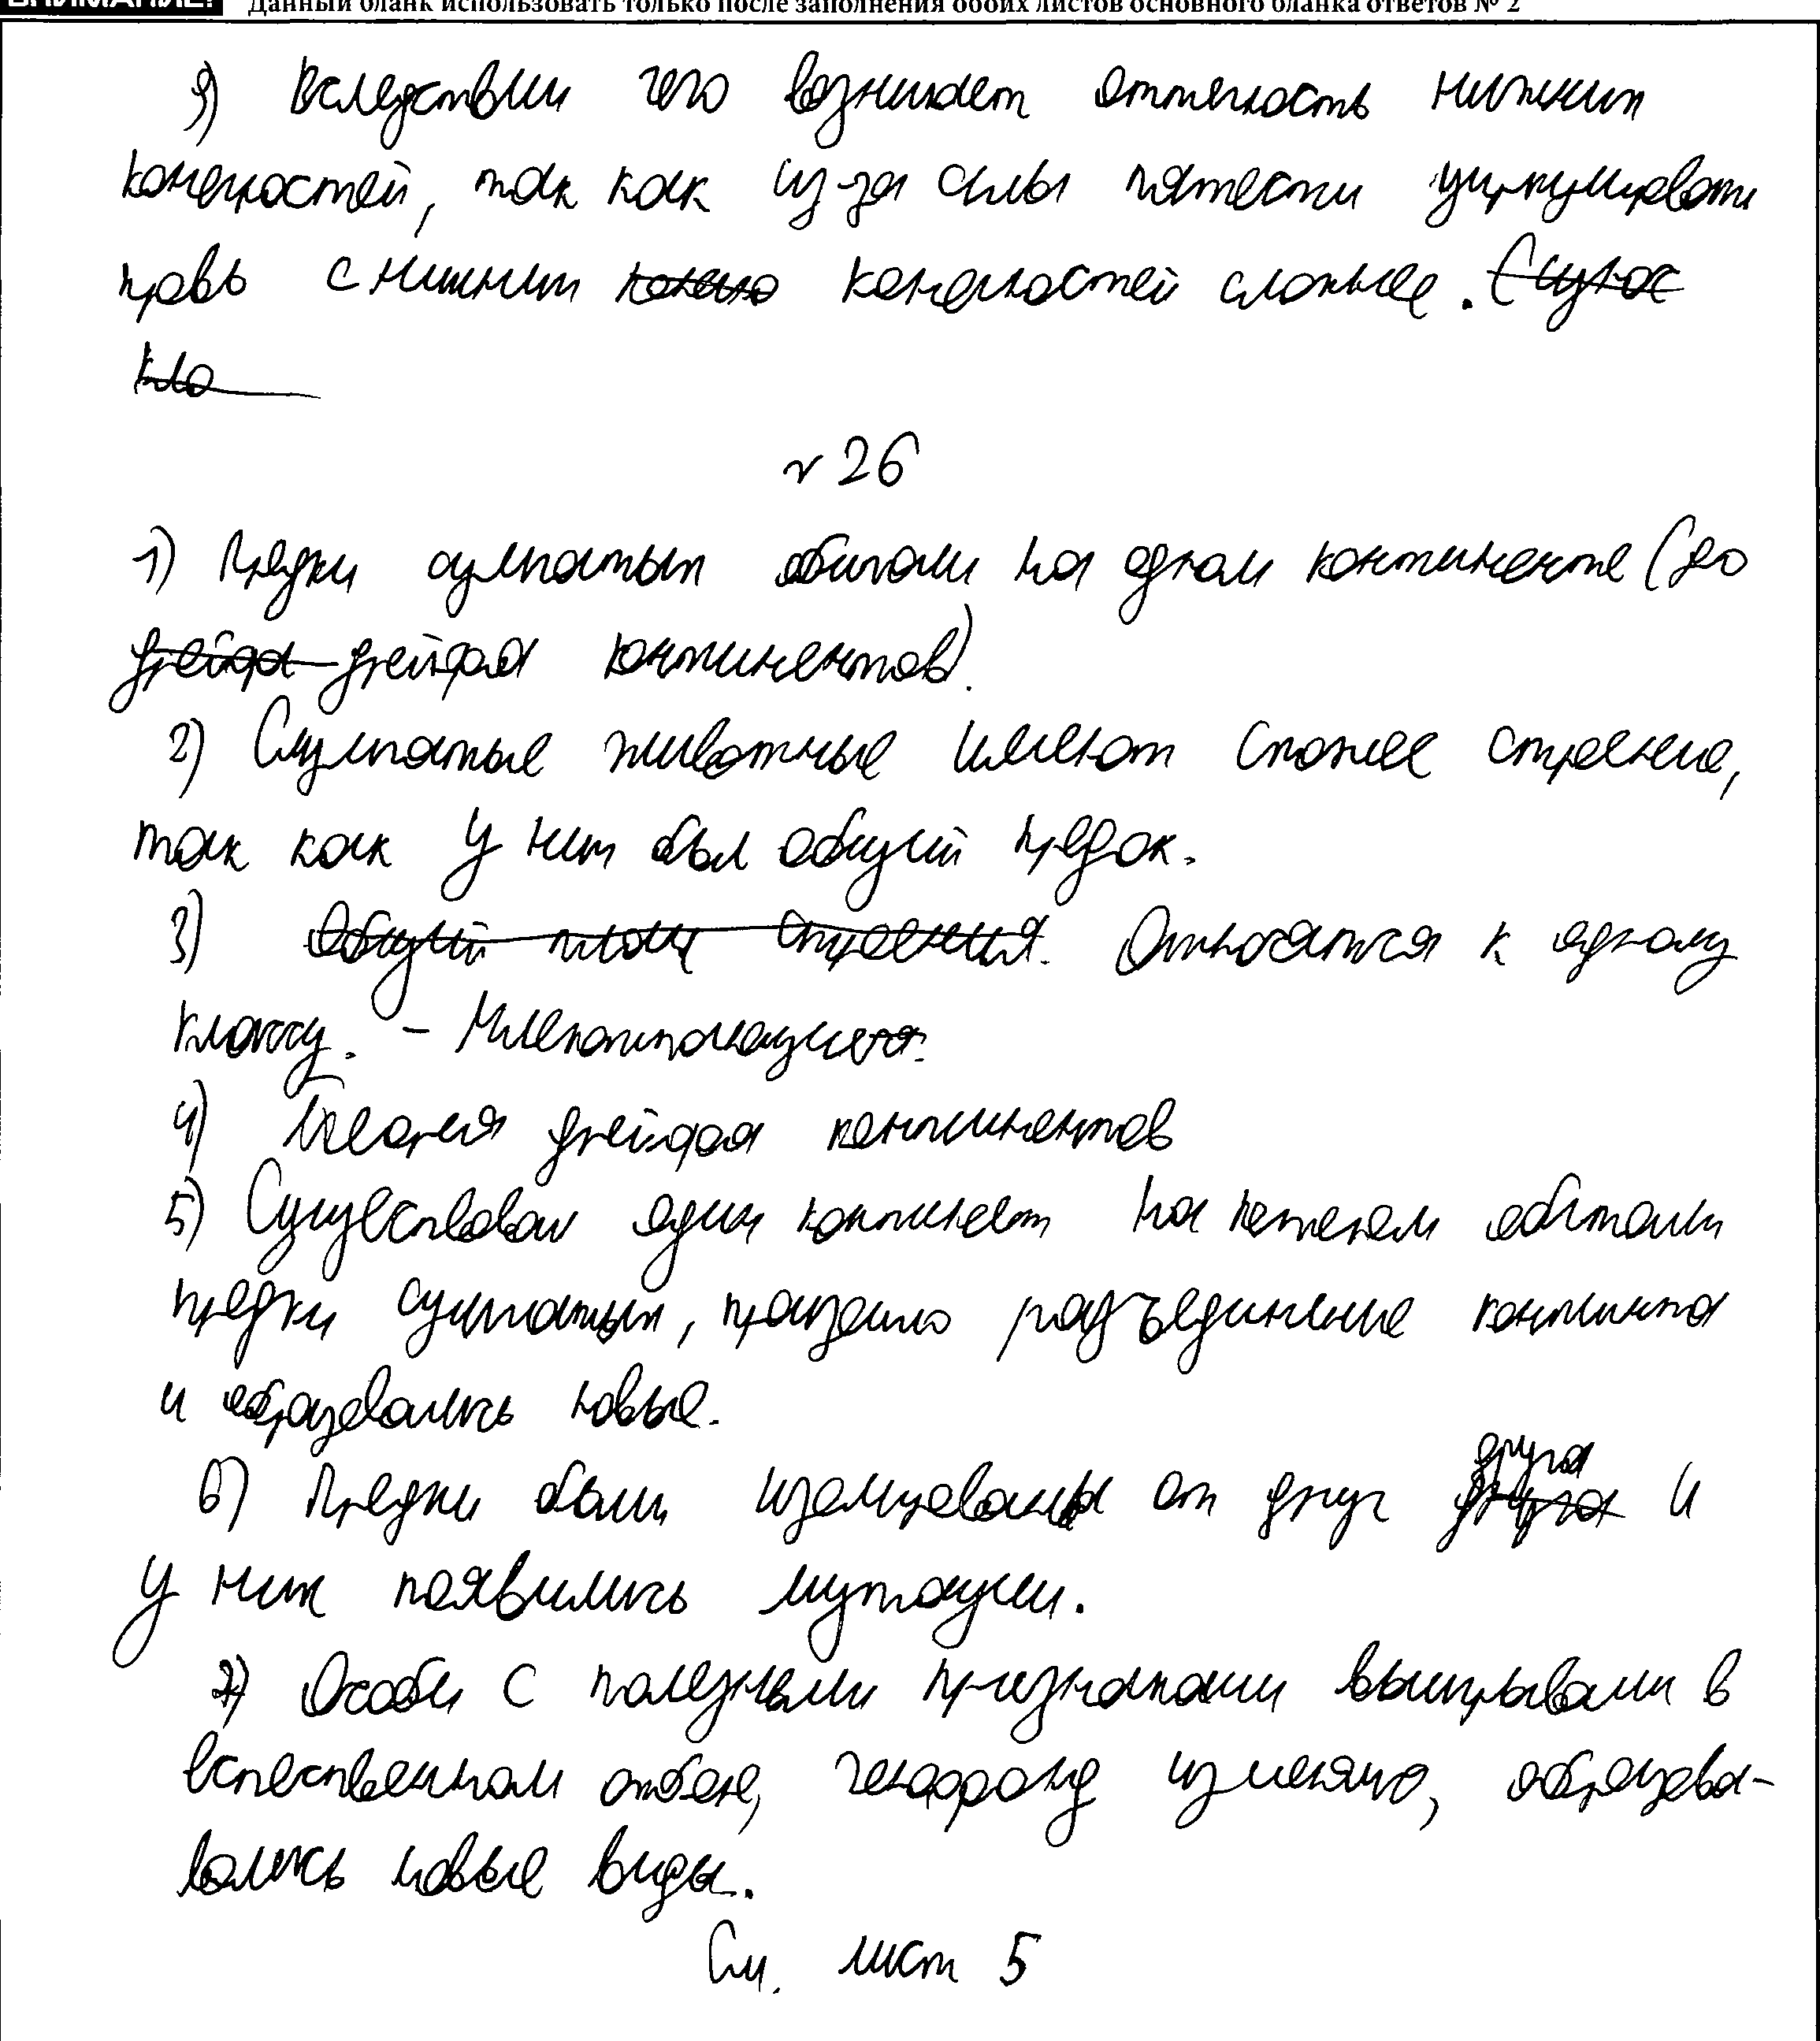 ВНИМАНИЕ! Данный бланк использовать только после заполнения обоих листов основного бланка ответов № 2
9) Вследствии чего возникает оттечность нижних
конечностей, так как из-за силы тяжести циркулировать
кровь с нижних конечно конечностей сложнее. Сутос
кло
№ 26
1) Предки сумчатых обитали на одном континенте (до
дрейфа дрейфа континентов).
2) Сумчатые животные имеют схожее строение,
так как у них был общий предок.
3) Общий план строения. Относятся к одному
классу. - Млекопитающие.
4) Теория дрейфа континентов
5) Существовал один континет на котором обитали
предки сумчатых, произошло разъединение континта
и образовались новые.
6) Предки были изолированы от друг друга друга и
у них появились мутации.
7) Особи с полезными признаками выигрывали в
естественном отборе, генофонд изменяло, образовы-
вались новые виды.
См. лист 5